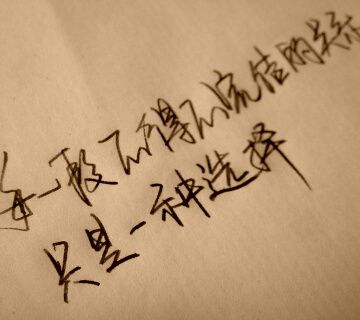 每一段不得不的关
只是一种选择